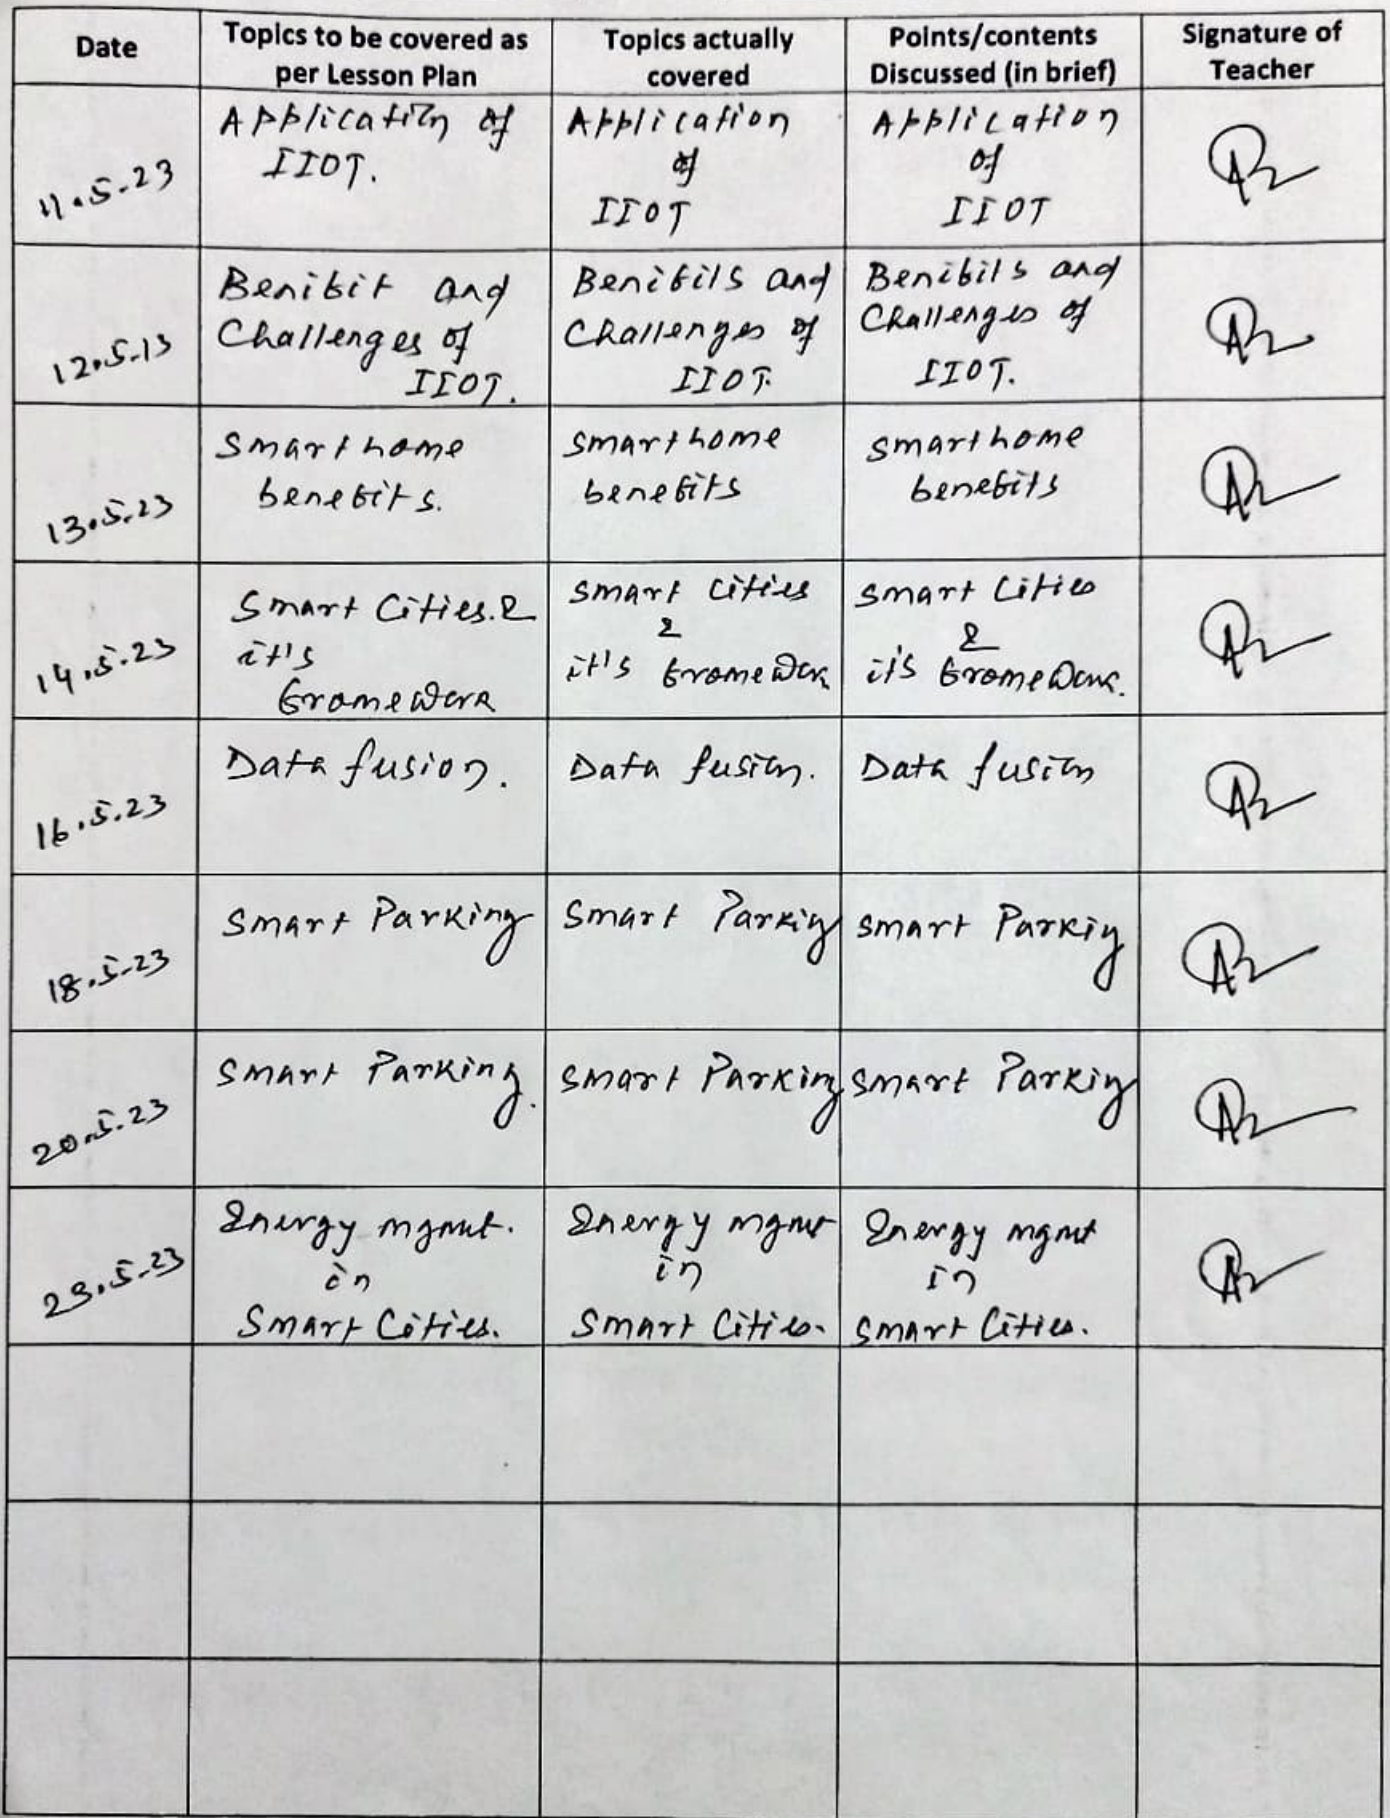 Date
Topics to be covered as
per Lesson Plan
Topics actually
covered
Points/contents
Discussed (in brief)
Signature of
Teacher
11.5.23
Application of
IIOT.
Application
of
IIOT
Application
of
IIOT
12.5.13
Benifit and
Challenges of
IIOT.
Benifits and
Challenges of
IIOT.
Benifits and
Challenges of
IIOT.
13.5.23
Smart home
benefits.
Smart home
benefits
Smart home
benefits
14.5.23
Smart Cities. &
it's
framework
Smart Cities
&
it's framework
Smart Cities
&
it's framework.
16.5.23
Data fusion.
Data fusion.
Data fusion
18.5.23
Smart Parking
Smart Parking
Smart Parking
20.5.23
Smart Parking.
Smart Parking
Smart Parking
23.5.23
Energy mgmt.
in
Smart Cities.
Energy mgmt
in
Smart Cities.
Energy mgmt
in
Smart Cities.